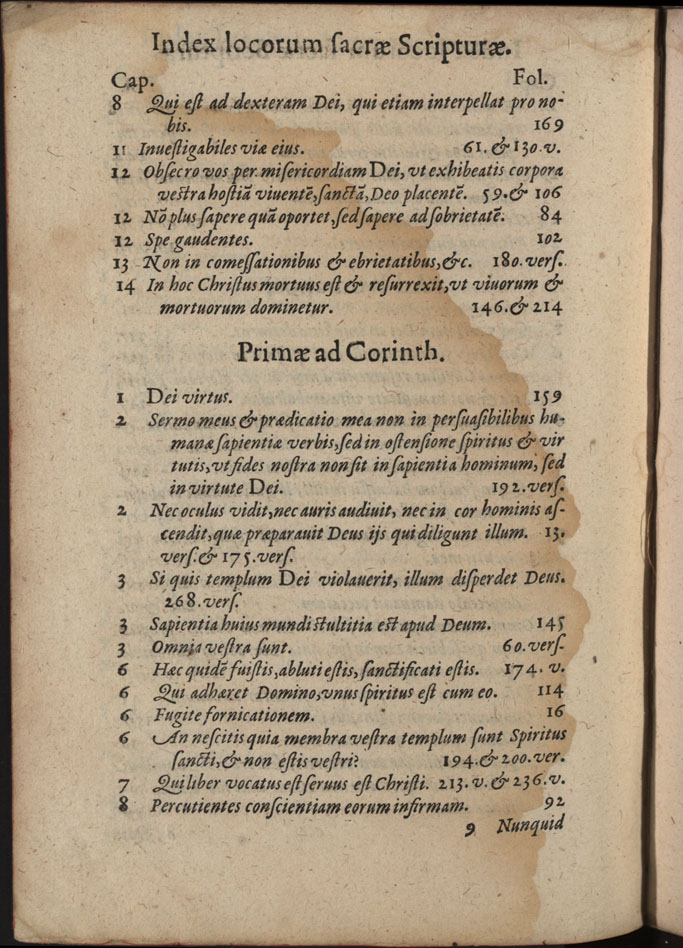 Index locorum ſacræ Scripturæ.
Cap. Fol.
8 Qui eſt ad dexteram Dei, qui etiam interpellat pro no-
bis. 169
11 Inueſtigabiles viæ eius. 61. & 130. v.
12 Obſecro vos per miſericordiam Dei, vt exhibeatis corpora
veſtra hoſtiã viuentẽ, ſanctã, Deo placentẽ. 59. & 106
12 Nõ plus ſapere quã oportet, ſed ſapere ad ſobrietatẽ. 84
12 Spe gaudentes. 102
13 Non in comeſſationibus & ebrietatibus, &c. 180. verſ.
14 In hoc Chriſtus mortuus eſt & reſurrexit, vt viuorum &
mortuorum dominetur. 146. & 214
Primæ ad Corinth.
1 Dei virtus. 159
2 Sermo meus & prædicatio mea non in perſuaſibilibus hu-
manæ ſapientiæ verbis, ſed in oſtenſione ſpiritus & vir
tutis, vt fides noſtra non ſit in ſapientia hominum, ſed
in virtute Dei. 192. verſ.
2 Nec oculus vidit, nec auris audiuit, nec in cor hominis aſ-
cendit, quæ præparauit Deus ijs qui diligunt illum. 13.
verſ. & 175. verſ.
3 Si quis templum Dei violauerit, illum diſperdet Deus.
268. verſ.
3 Sapientia huius mundi ſtultitia eſt apud Deum. 145
3 Omnia veſtra ſunt. 60. verſ.
6 Hæc quidẽ fuiſtis, abluti eſtis, ſanctificati eſtis. 174. v.
6 Qui adhæret Domino, vnus ſpiritus eſt cum eo. 114
6 Fugite fornicationem. 16
6 An neſcitis quia membra veſtra templum ſunt Spiritus
ſancti, & non eſtis veſtri? 194. & 200. ver.
7 Qui liber vocatus eſt ſeruus eſt Chriſti. 213. v. & 236. v.
8 Percutientes conſcientiam eorum infirmam. 92
9 Nunquid